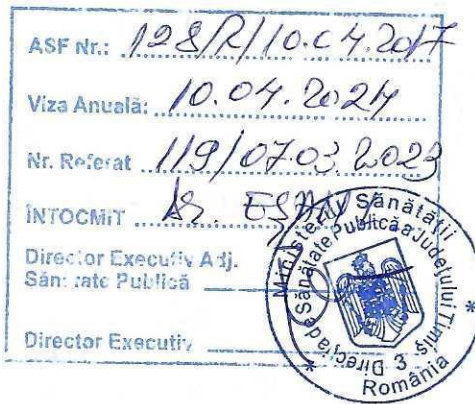 ASF Nr.: 128/R/10.04.2017
Viza Anuală: 10.04.2024
Nr. Referat 119/07.03.2023
ÎNTOCMIT Dr.
Director Executiv Adj.
Sănătate Publică
Director Executiv
Ministerul Sănătății
Direcția de Sănătate Publică a Județului Timiș
3
România